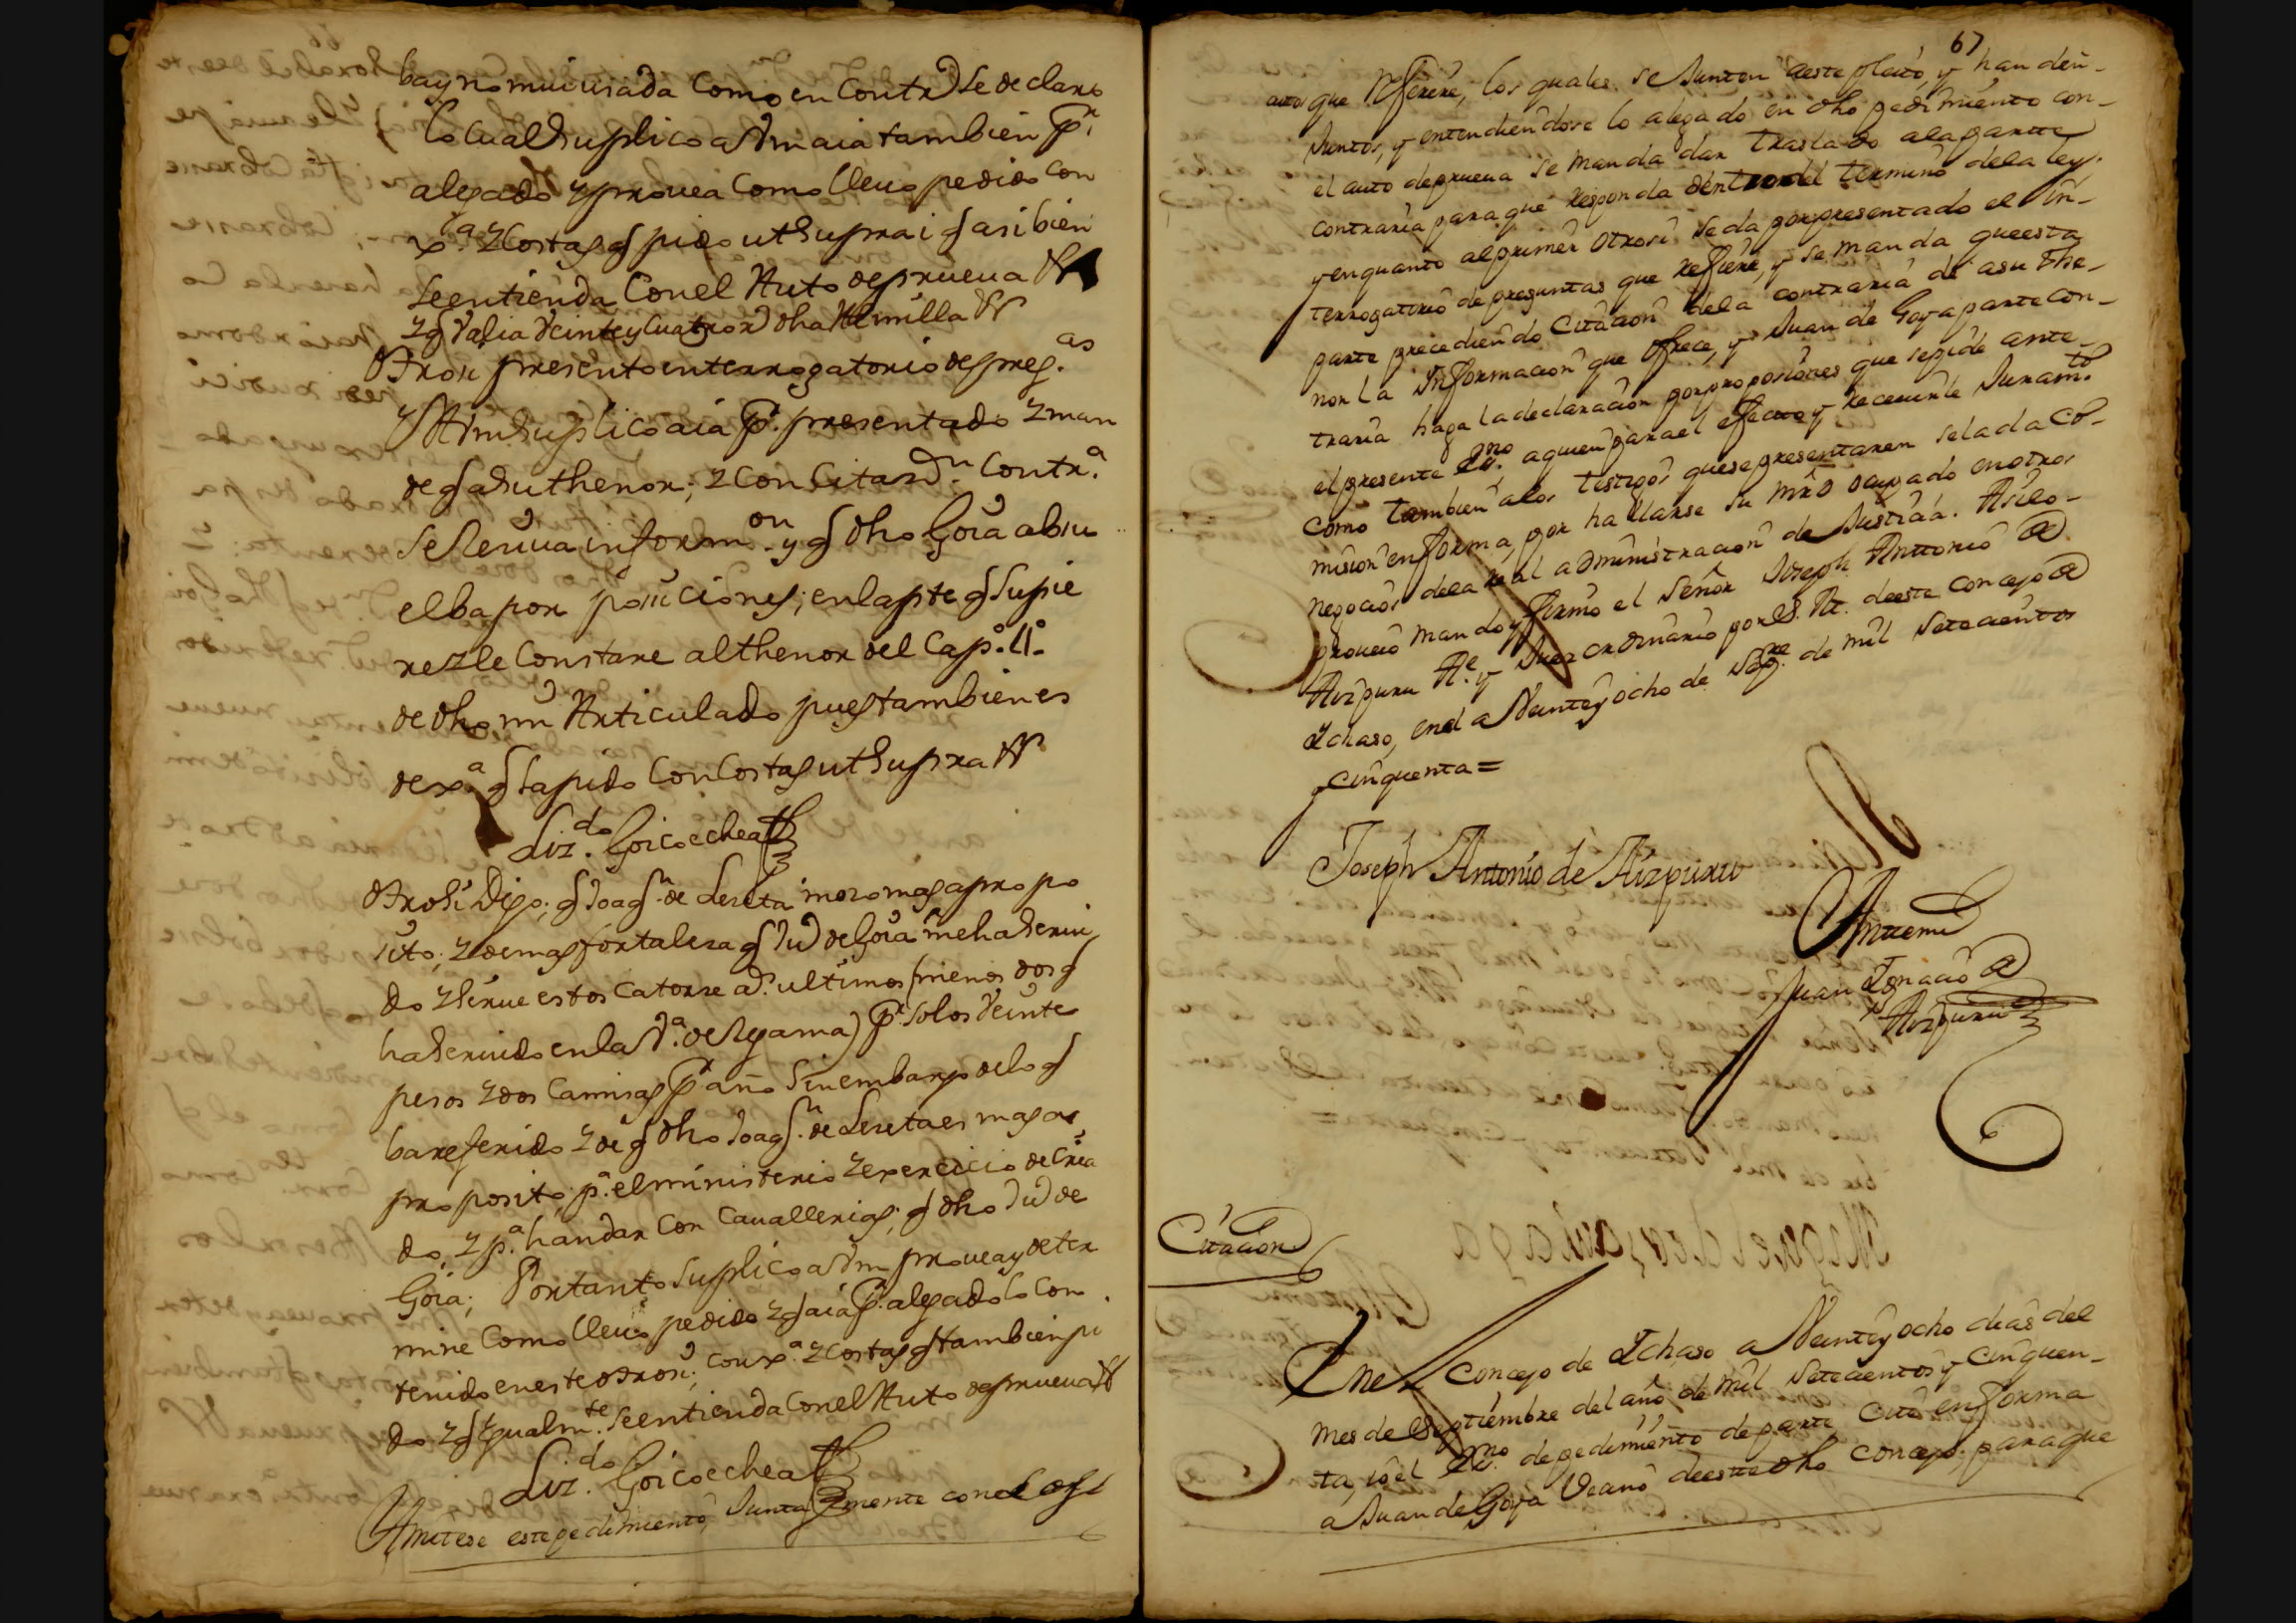 bay no mui usada Como en Contr.º Se declaro
lo cual Suplico a Vm aia tambien pr.
alegado y prouea Como lleuo pedido con
xª. y Costas q pido ut Supra i q asi bien
Se entienda Con el Auto de prueua
y q Valia Veinte y Cuatro r.º dha Almilla
Otrosi presento interrogatorio de preg.as
Y A Vm Suplico aia pr. presentado y man
de q a Su thenor; y Con Citaz.on Contr.a
Se Reciua inform.on y q dho Goia absu
elba por posiciones, en la pte q Supie
re y le Constare al thenor del Cap.º 11.º
de dho mi Articulado pues tambien es
de xª. q la pido Con Costas ut Supra
Liz.do Goicoechea
Otrosi Digo, q Joaq.n de Lereta mozo mas apropo
sito, y de mas fortaleza q Ju.º de Goia me ha Serui
do y Sirue estos Catorze a.s ultimos (menos dos q
ha Seruido en la V.ª de Segama) pr. Solos Veinte
pesos y dos Camisas pr. año Sin embargo de lo q
ba referido y de q dho Joaq.n de Lereta es mas a
proposito, p.ª el ministerio y exercicio de Cria
do, y p.ª handar Con Cauallerias, q dho Ju.º de
Goia; Portanto Suplico a Vm prouea y deter
mine Como lleuo pedido y q aia pr. alegado lo Con
tenido en este otrosi, con xª. y Costas q tambien pi
do y q Igualm.te Se entienda Con el Auto de prueua
Liz.do Goicoechea
Amitese este pedimiento Juntamente con
67
auto que Refiere, los quales se Junten a este pleito, y han den-
Juntos, y entendiendose lo alegado en dho pedimiento con-
el auto de prueua se manda dar traslado a la parte
contraria para que responda dentro del termino de la ley.
y en quanto al primer otrosi se da por presentado el In-
terrogatorio de preguntas que refiere, y se manda que esta
parte precediendo Citacion de la contraria dé a su the-
nor la Informacion que ofrece, y Juan de Goya parte con-
traria haga la declaracion por proposiciones que se pide ante
el presente Ess.no a quien para el efecto y receuirle Juram.to
como tambien a los testigos que se presentaren se la da Co-
mision en forma, por hallarse su mrd ocupado en otros
negocios de la real administracion de Justicia. Asi lo
proueió mando y firmo el Señor Joseph Anttonio de
Aizpuru Al.e y Juez ordinario por S. M. de este Concejo de
Ichaso, en el a Veinte y ocho de Sep.re de mil Setecientos
y cinquenta=
Joseph Antonio de Aizpuru
Antte mi
Juan Ignacio de
Aizpuru
Citacion
En el Concejo de Ichaso a Veinte y ocho dias del
mes de Septiembre del año de mil Setecientos y cinquen-
ta, io el Ess.no de pedimiento de parte, cité en forma
a Juan de Goya Vecino de este dho Concejo, para que